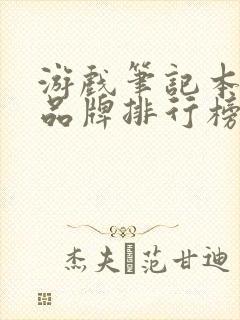 游戲筆記本
品牌排行榜
杰夫·范甘迪